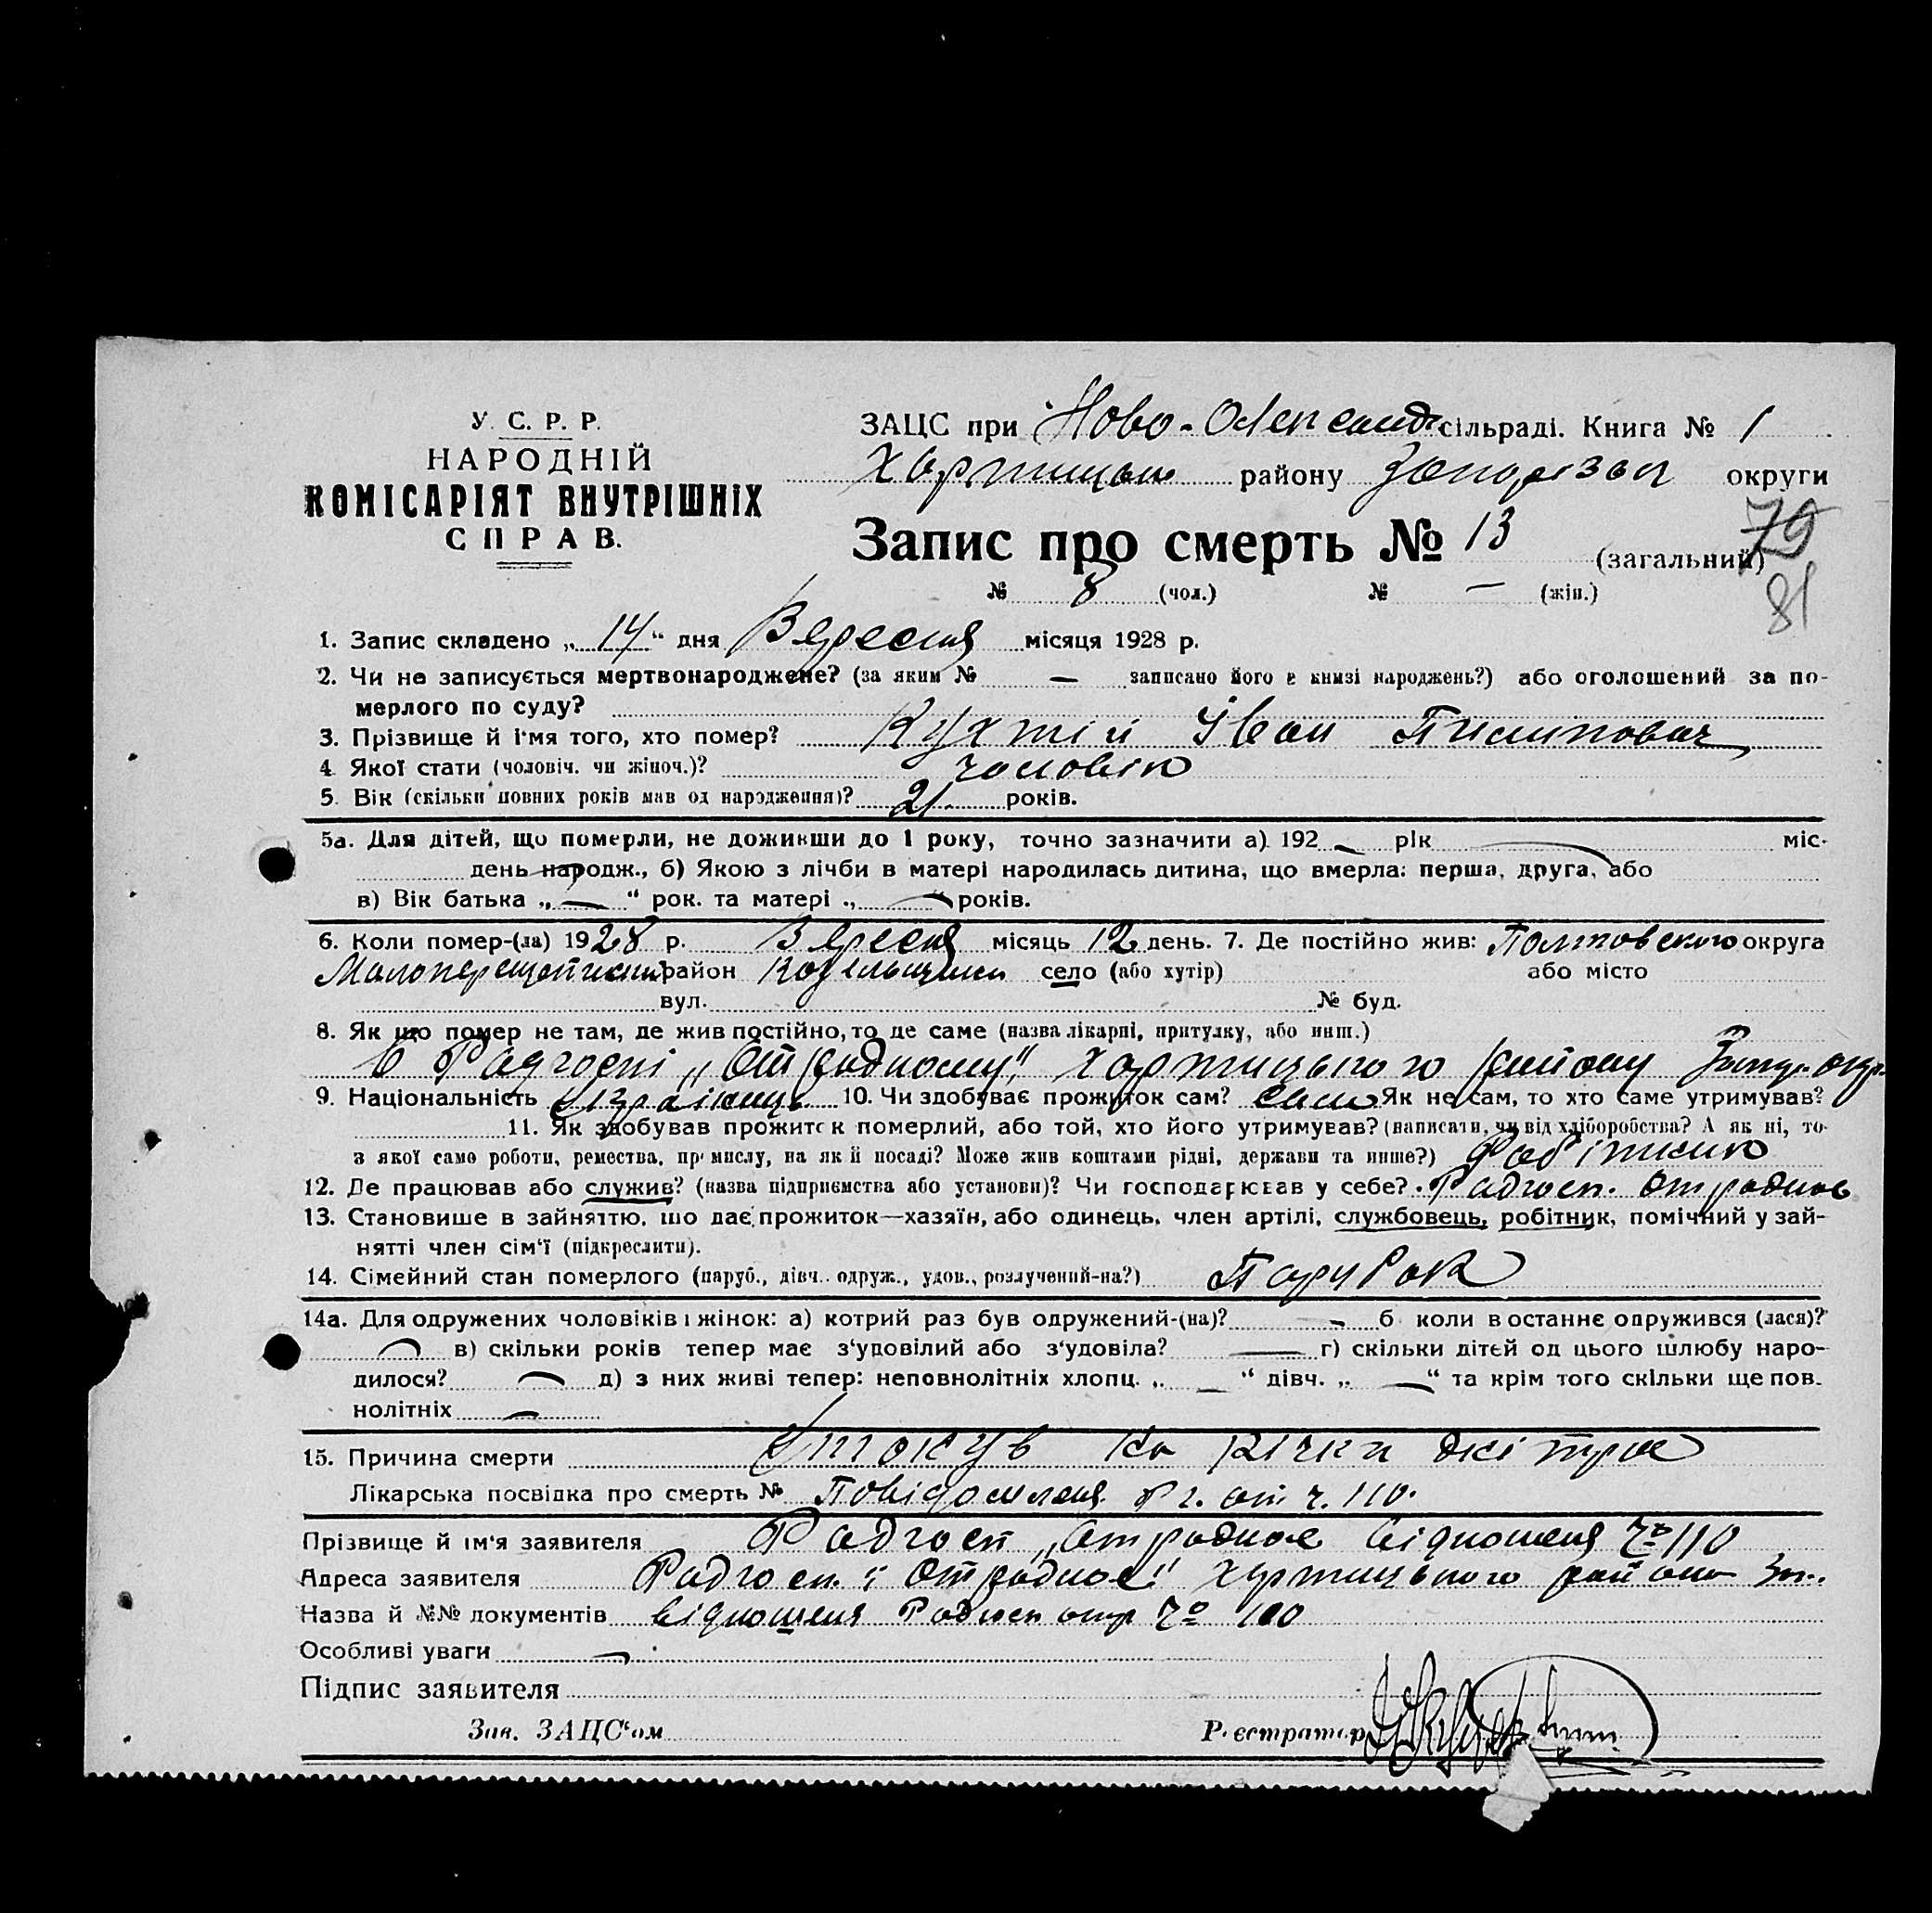 У. С. Р. Р.
НАРОДНІЙ
КОМІСАРІЯТ ВНУТРІШНІХ
СПРАВ.
ЗАЦС при Ново-Олександ сільраді. Книга № 1
Хортицьк району Запорізьк округи
Запис про смерть № 13 (загальний)
79
81
№ 8 (чол.) № — (жін.)
1. Запис складено „ 14 “ дня Вересня місяця 1928 р.
2. Чи не записується мертвонароджене? (за яким № — записано його в книзі народжень?) або оголошений за по-
мерлого по суду?
3. Прізвище й ім'я того, хто помер? Кухтій Іван Пилипович
4. Якої стати (чоловіч. чи жіноч.)? чоловік
5. Вік (скільки повних років мав од народження)? 21 років.
5а. Для дітей, що померли, не доживши до 1 року, точно зазначити а) 192 — рік міс.
день народж., б) Якою з лічби в матері народилась дитина, що вмерла: перша, друга, або
в) Вік батька „ — “ рок. та матері „ — років.
6. Коли помер-(ла) 1928 р. Вересня місяць 12 день. 7. Де постійно жив: Полтовского округа
район село (або хутір) або місто
вул. № буд.
8. Як що помер не там, де жив постійно, то де саме (назва лікарні, притулку, або инш.)
в Радгоспі „Отрадному“, Хортицького району окр.
9. Національність 10. Чи здобуває прожиток сам? сам Як не сам, то хто саме утримував?
11. Як здобував прожиток померлий, або той, хто його утримував? (написати, чи від хліборобства? А як ні, то-
з якої само роботи, ремества, промислу, на якій посаді? Може жив коштами рідні, держави та инше?) Робітник
12. Де працював або служив? (назва підприємства або установи)? Чи господарював у себе? Радгосп. Отрадное
13. Становище в зайняттю, що дає прожиток—хазяїн, або одинець, член артілі, службовець, робітник, помічний у зай-
нятті член сім'ї (підкреслити).
14. Сімейний стан померлого (паруб., дівч., одруж., удов., розлучений-на?) Парубок
14а. Для одружених чоловіків і жінок: а) котрий раз був одружений-(на)? — б коли востаннє одружився (лася)?
— в) скільки років тепер має з'удовілий або з'удовіла? — г) скільки дітей од цього шлюбу наро-
дилося? — д) з них живі тепер: неповнолітніх хлопц. „ — “ дівч. „ — “ та крім того скільки ще пов.
нолітніх —
15. Причина смерти на річки
Лікарська посвідка про смерть № ч. 110.
Прізвище й ім'я заявителя Радгосп „Отрадное відношеня 110
Адреса заявителя Радгосп. „Отрадное“ Хортицького району Зап.
Назва й №№ документів відношеня Радгосп отр 100
Особливі уваги —
Підпис заявителя
Зав. ЗАЦС'ом Реєстратор